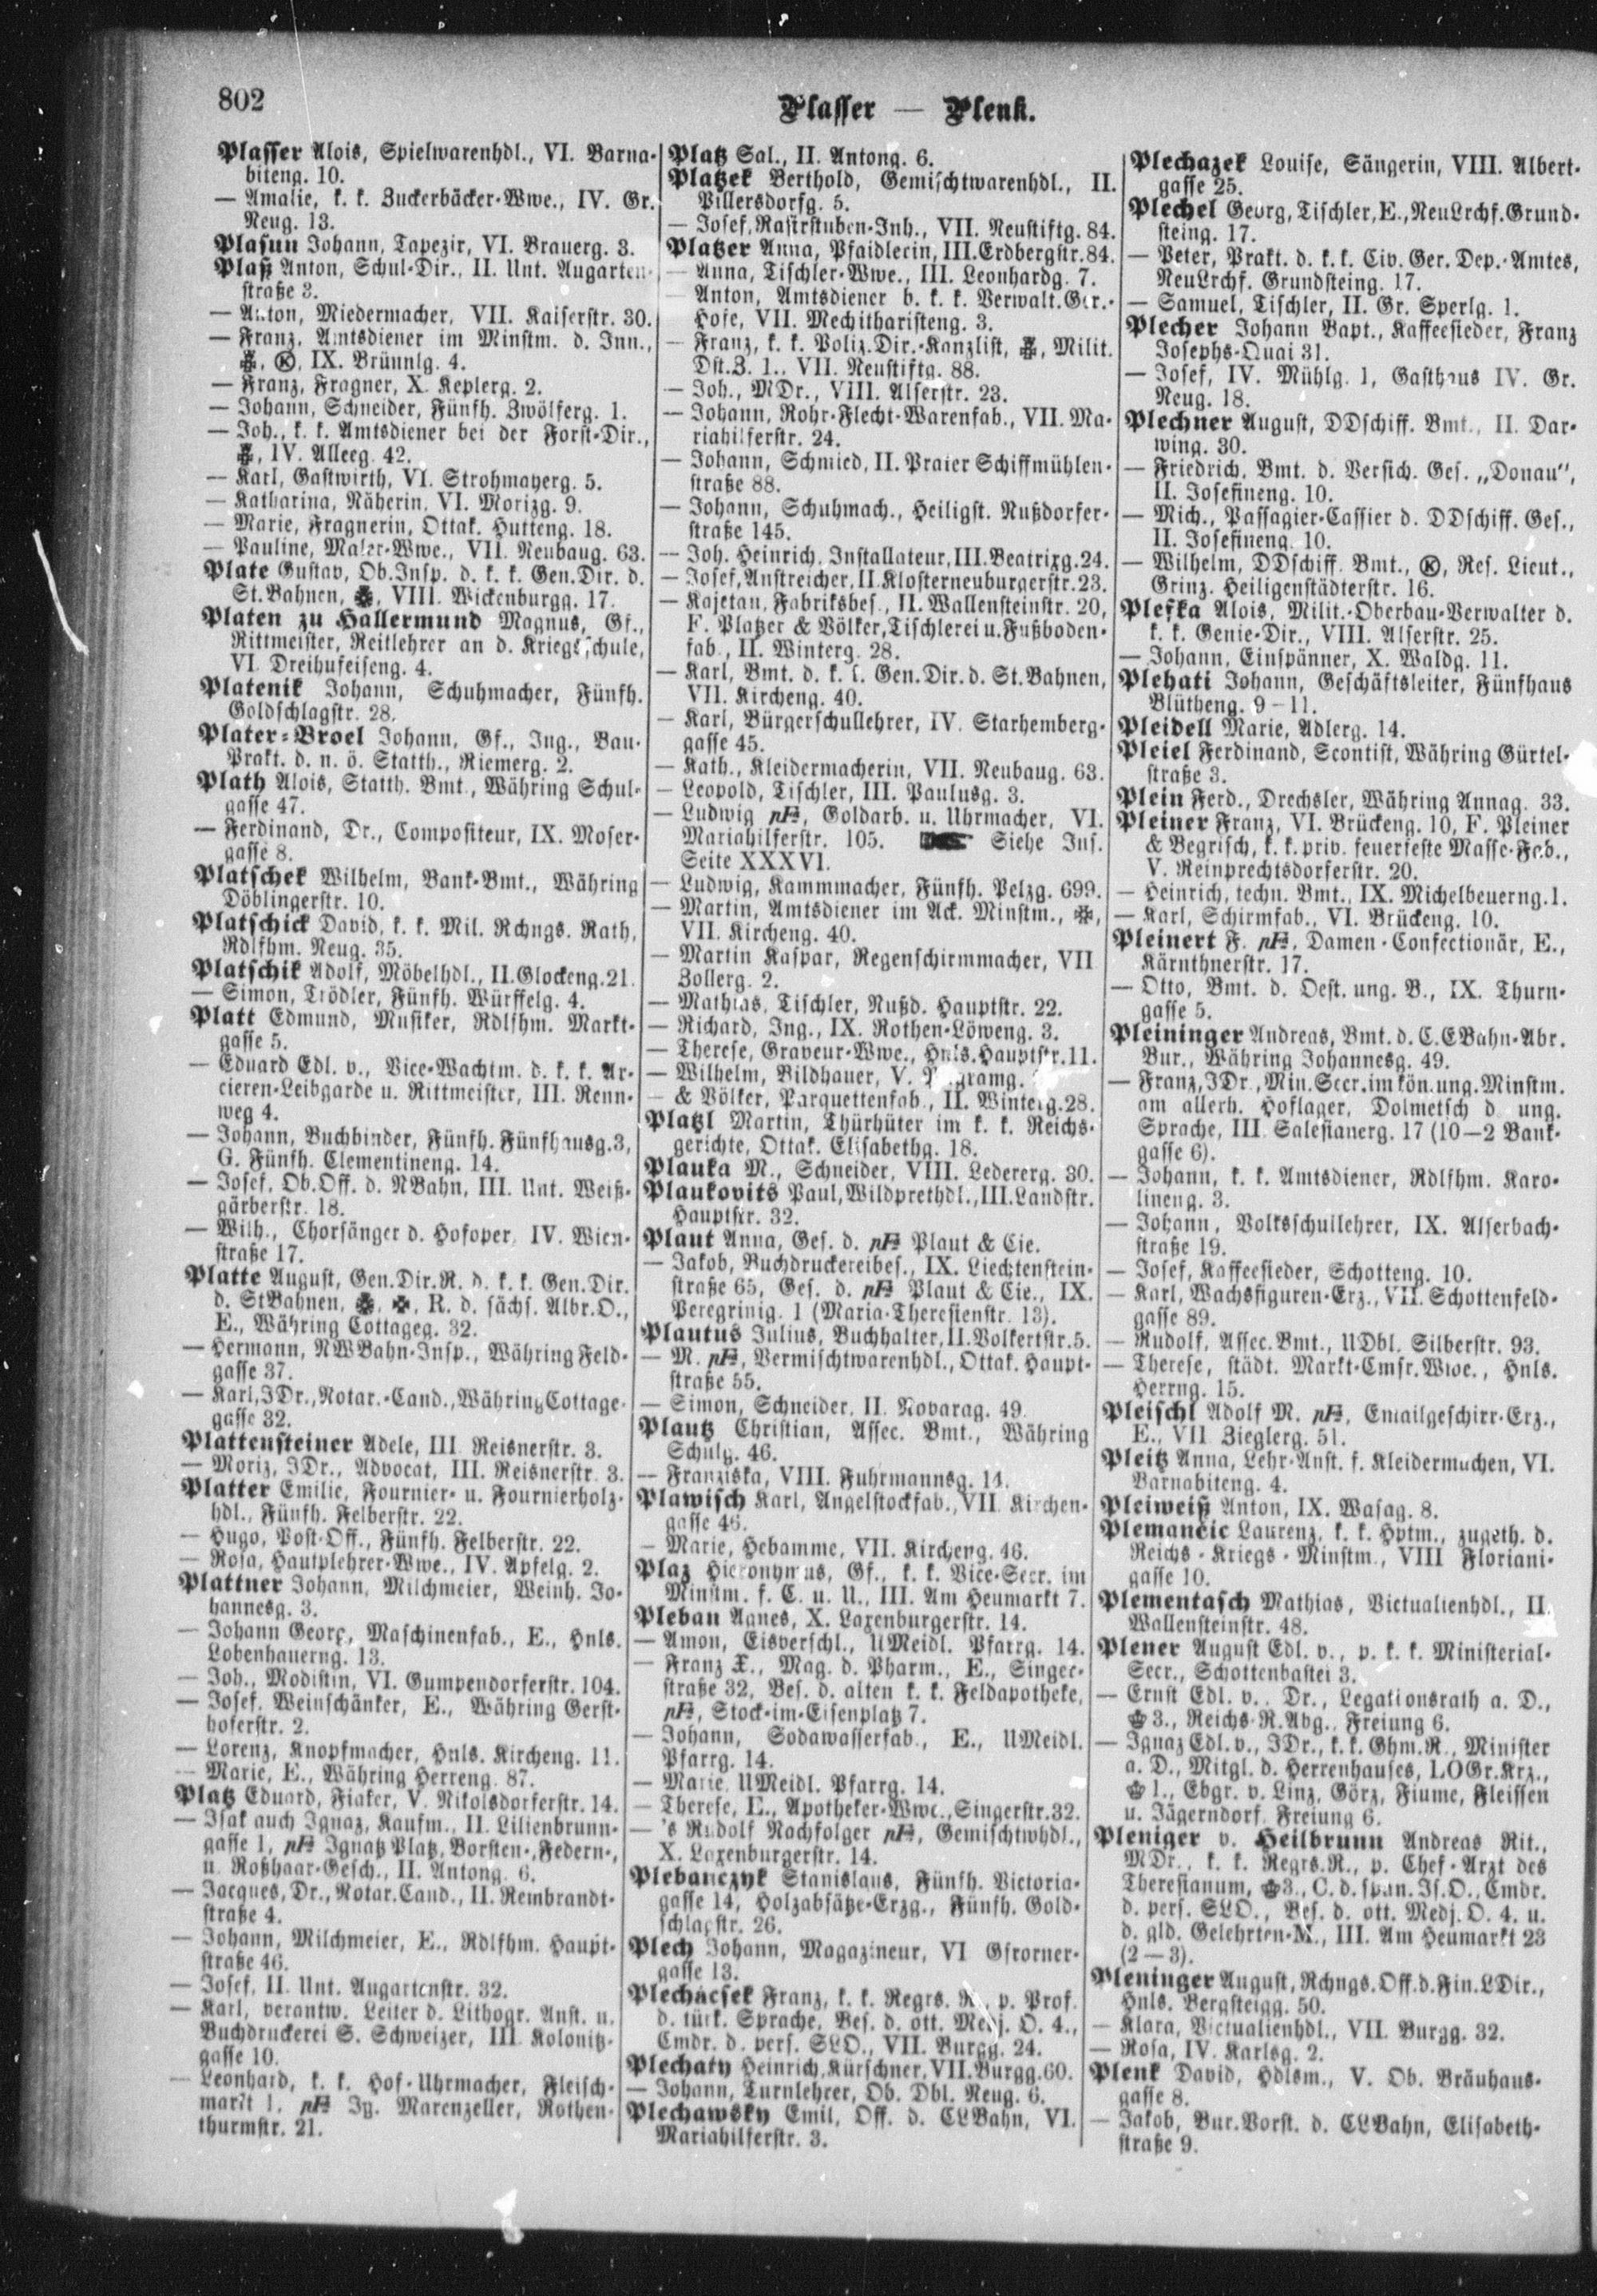 802
Plasser — Plenk.
Plasser Alois, Spielwarenhdl., VI. Barna-
biteng. 10.
— Amalie, k. k. Zuckerbäcker-Wwe., IV. Gr.
Neug. 13.
Plasun Johann, Tapezir, VI. Brauerg. 3.
Plaß Anton, Schul-Dir., II. Unt. Augarten-
straße 3.
— Anton, Miedermacher, VII. Kaiserstr. 30.
— Franz, Amtsdiener im Minstm. d. Inn.,
IX. Brünnlg. 4.
— Franz, Fragner, X. Keplerg. 2.
— Johann, Schneider, Fünfh. Zwölferg. 1.
— Joh., k. k. Amtsdiener bei der Forst-Dir.,
IV. Alleeg. 42.
— Karl, Gastwirth, VI. Strohmayerg. 5.
— Katharina, Näherin, VI. Morizg. 9.
— Marie, Fragnerin, Ottak. Hutteng. 18.
— Pauline, Maler-Wwe., VII. Neubaug. 63.
Plate Gustav, Ob.Insp. d. k. k. Gen.Dir. d.
St.Bahnen, VIII. Wickenburgg. 17.
Platen zu Hallermund Magnus, Gf.,
Rittmeister, Reitlehrer an d. Kriegsschule,
VI. Dreihufeiseng. 4.
Platenik Johann, Schuhmacher, Fünfh.
Goldschlagstr. 28.
Plater-Broel Johann, Gf., Ing., Bau-
Prakt. d. n. ö. Statth., Riemerg. 2.
Plath Alois, Statth. Bmt., Währing Schul-
gasse 47.
— Ferdinand, Dr., Compositeur, IX. Moser-
gasse 8.
Platschek Wilhelm, Bank-Bmt., Währing
Döblingerstr. 10.
Platschick David, k. k. Mil. Rchngs. Rath,
Rdlfhm. Neug. 35.
Platschik Adolf, Möbelhdl., II. Glockeng. 21.
— Simon, Trödler, Fünfh. Würffelg. 4.
Platt Edmund, Musiker, Rdlfhm. Markt-
gasse 5.
— Eduard Edl. v., Vice-Wachtm. d. k. k. Ar-
cieren-Leibgarde u. Rittmeister, III. Renn-
weg 4.
— Johann, Buchbinder, Fünfh. Fünfhausg. 3,
G. Fünfh. Clementineng. 14.
— Josef, Ob.Off. d. NBahn, III. Unt. Weiß-
gärberstr. 18.
— Wilh., Chorsänger d. Hofoper, IV. Wien-
straße 17.
Platte August, Gen.Dir.R. d. k. k. Gen.Dir.
d. StBahnen, R. d. sächs. Albr.O.,
E., Währing Cottageg. 32.
— Hermann, NWBahn-Insp., Währing Feld-
gasse 37.
— Karl, JDr., Notar.-Cand., Währing Cottage-
gasse 32.
Plattensteiner Adele, III. Reisnerstr. 3.
— Moriz, JDr., Advocat, III. Reisnerstr. 3.
Platter Emilie, Fournier- u. Fournierholz-
hdl., Fünfh. Felberstr. 22.
— Hugo, Post-Off., Fünfh. Felberstr. 22.
— Rosa, Hautplehrer-Wwe., IV. Apfelg. 2.
Plattner Johann, Milchmeier, Weinh. Jo-
hannesg. 3.
— Johann Georg, Maschinenfab., E., Hnls.
Lobenhauerng. 13.
— Joh., Modistin, VI. Gumpendorferstr. 104.
— Josef, Weinschänker, E., Währing Gerst-
hoferstr. 2.
— Lorenz, Knopfmacher, Hnls. Kircheng. 11.
— Marie, E., Währing Herreng. 87.
Platz Eduard, Fiaker, V. Nikolsdorferstr. 14.
— Isak auch Ignaz, Kaufm., II. Lilienbrunn-
gasse 1, pFa Ignatz Platz, Borsten-, Federn-,
u. Roßhaar-Gesch., II. Antong. 6.
— Jacques, Dr., Notar.Cand., II. Rembrandt-
straße 4.
— Johann, Milchmeier, E., Rdlfhm. Haupt-
straße 46.
— Josef, II. Unt. Augartenstr. 32.
— Karl, verantw. Leiter d. Lithogr. Anst. u.
Buchdruckerei S. Schweizer, III. Kolonitz-
gasse 10.
— Leonhard, k. k. Hof-Uhrmacher, Fleisch-
markt 1, pFa Ig. Marenzeller, Rothen-
thurmstr. 21.
Platz Sal., II. Antong. 6.
Platzek Berthold, Gemischtwarenhdl., II.
Pillersdorfg. 5.
— Josef, Rasirstuben-Inh., VII. Neustiftg. 84.
Platzer Anna, Pfaidlerin, III. Erdbergstr. 84.
— Anna, Tischler-Wwe., III. Leonhardg. 7.
— Anton, Amtsdiener b. k. k. Verwalt.Ger.-
Hofe, VII. Mechitharisteng. 3.
— Franz, k. k. Poliz.Dir.-Kanzlist, Milit.
Dst.Z. 1., VII. Neustiftg. 88.
— Joh., MDr., VIII. Alserstr. 23.
— Johann, Rohr-Flecht-Warenfab., VII. Ma-
riahilferstr. 24.
— Johann, Schmied, II. Prater Schiffmühlen-
straße 88.
— Johann, Schuhmach., Heiligst. Nußdorfer-
straße 145.
— Joh. Heinrich, Installateur, III. Beatrixg. 24.
— Josef, Anstreicher, II. Klosterneuburgerstr. 23.
— Kajetan, Fabriksbes., II. Wallensteinstr. 20,
F. Platzer & Völker, Tischlerei u. Fußboden-
fab., II. Winterg. 28.
— Karl, Bmt. d. k. k. Gen.Dir. d. St.Bahnen,
VII. Kircheng. 40.
— Karl, Bürgerschullehrer, IV. Starhemberg-
gasse 45.
— Kath., Kleidermacherin, VII. Neubaug. 63.
— Leopold, Tischler, III. Paulusg. 3.
— Ludwig pFa, Goldarb. u. Uhrmacher, VI.
Mariahilferstr. 105. Siehe Ins.
Seite XXXVI.
— Ludwig, Kammmacher, Fünfh. Pelzg. 699.
— Martin, Amtsdiener im Ack. Minstm.,
VII. Kircheng. 40.
— Martin Kaspar, Regenschirmmacher, VII
Zollerg. 2.
— Mathias, Tischler, Nußd. Hauptstr. 22.
— Richard, Ing., IX. Rothen-Löweng. 3.
— Therese, Graveur-Wwe., Hnls. Hauptstr. 11.
— Wilhelm, Bildhauer, V.
— & Völker, Parquettenfab., II. Winterg. 28.
Platzl Martin, Thürhüter im k. k. Reichs-
gerichte, Ottak. Elisabethg. 18.
Plauka M., Schneider, VIII. Ledererg. 30.
Plaukovits Paul, Wildprethdl., III. Landstr.
Hauptstr. 32.
Plaut Anna, Ges. d. pFa Plaut & Cie.
— Jakob, Buchdruckereibes., IX. Liechtenstein-
straße 65, Ges. d. pFa Plaut & Cie., IX.
Peregrinig. 1 (Maria-Theresienstr. 13).
Plautus Julius, Buchhalter, II. Volkertstr. 5.
— M. pFa, Vermischtwarenhdl., Ottak. Haupt-
straße 55.
— Simon, Schneider, II. Novarag. 49.
Plautz Christian, Assec. Bmt., Währing
Schulg. 46.
— Franziska, VIII. Fuhrmannsg. 14.
Plawisch Karl, Angelstockfab., VII. Kirchen-
gasse 46.
— Marie, Hebamme, VII. Kircheng. 46.
Plaz Hieronymus, Gf., k. k. Vice-Secr. im
Minstm. f. C. u. U., III. Am Heumarkt 7.
Pleban Agnes, X. Laxenburgerstr. 14.
— Amon, Eisverschl., UMeidl. Pfarrg. 14.
— Franz X., Mag. d. Pharm., E., Singer-
straße 32, Bes. d. alten k. k. Feldapotheke,
pFa, Stock-im-Eisenplatz 7.
— Johann, Sodawasserfab., E., UMeidl.
Pfarrg. 14.
— Marie, UMeidl. Pfarrg. 14.
— Therese, E., Apotheker-Wwe., Singerstr. 32.
— 's Rudolf Nachfolger pFa, Gemischtwhdl.,
X. Laxenburgerstr. 14.
Plebanczyk Stanislaus, Fünfh. Victoria-
gasse 14, Holzabsätze-Erzg., Fünfh. Gold-
schlagstr. 26.
Plech Johann, Magazineur, VI Gfrorner-
gasse 13.
Plechácsek Franz, k. k. Regrs. R., p. Prof.
d. türk. Sprache, Bes. d. ott. Medj. O. 4.,
Cmdr. d. pers. SLO., VII. Burgg. 24.
Plechaty Heinrich, Kürschner, VII. Burgg. 60.
— Johann, Turnlehrer, Ob. Dbl. Neug. 6.
Plechawsky Emil, Off. d. CLBahn, VI.
Mariahilferstr. 3.
Plechazek Louise, Sängerin, VIII. Albert-
gasse 25.
Plechel Georg, Tischler, E., NeuLrchf. Grund-
steing. 17.
— Peter, Prakt. d. k. k. Civ. Ger. Dep.-Amtes,
NeuLrchf. Grundsteing. 17.
— Samuel, Tischler, II. Gr. Sperlg. 1.
Plecher Johann Bapt., Kaffeesieder, Franz
Josephs-Quai 31.
— Josef, IV. Mühlg. 1, Gasthaus IV. Gr.
Neug. 18.
Plechner August, DDschiff. Bmt., II. Dar-
wing. 30.
— Friedrich, Bmt. d. Versich. Ges. „Donau",
II. Josefineng. 10.
— Mich., Passagier-Cassier d. DDschiff. Ges.,
II. Josefineng. 10.
— Wilhelm, DDschiff. Bmt., Res. Lieut.,
Grinz. Heiligenstädterstr. 16.
Plefka Alois, Milit.-Oberbau-Verwalter d.
k. k. Genie-Dir., VIII. Alserstr. 25.
— Johann, Einspänner, X. Waldg. 11.
Plehati Johann, Geschäftsleiter, Fünfhaus
Blütheng. 9–11.
Pleidell Marie, Adlerg. 14.
Pleiel Ferdinand, Scontist, Währing Gürtel-
straße 3.
Plein Ferd., Drechsler, Währing Annag. 33.
Pleiner Franz, VI. Brückeng. 10, F. Pleiner
& Begrisch, k. k. priv. feuerfeste Masse-Fab.,
V. Reinprechtsdorferstr. 20.
— Heinrich, techn. Bmt., IX. Michelbeuerng. 1.
— Karl, Schirmfab., VI. Brückeng. 10.
Pleinert F. pFa, Damen-Confectionär, E.,
Kärnthnerstr. 17.
— Otto, Bmt. d. Oest. ung. B., IX. Thurn-
gasse 5.
Pleininger Andreas, Bmt. d. C.EBahn-Abr.
Bur., Währing Johannesg. 49.
— Franz, JDr., Min.Secr. im kön. ung. Minstm.
am allerh. Hoflager, Dolmetsch d. ung.
Sprache, III. Salesianerg. 17 (10—2 Bank-
gasse 6).
— Johann, k. k. Amtsdiener, Rdlfhm. Karo-
lineng. 3.
— Johann, Volksschullehrer, IX. Alserbach-
straße 19.
— Josef, Kaffeesieder, Schotteng. 10.
— Karl, Wachsfiguren-Erz., VII. Schottenfeld-
gasse 89.
— Rudolf, Assec.Bmt., UDbl. Silberstr. 93.
— Therese, städt. Markt-Cmsr.Wwe., Hnls.
Herrng. 15.
Pleischl Adolf M. pFa, Emailgeschirr-Erz.,
E., VII. Zieglerg. 51.
Pleitz Anna, Lehr-Anst. f. Kleidermachen, VI.
Barnabiteng. 4.
Pleiweiß Anton, IX. Wasag. 8.
Plemančic Laurenz, k. k. Hptm., zugeth. d.
Reichs-Kriegs-Minstm., VIII Floriani-
gasse 10.
Plementasch Mathias, Victualienhdl., II.
Wallensteinstr. 48.
Plener August Edl. v., p. k. k. Ministerial-
Secr., Schottenbastei 3.
— Ernst Edl. v., Dr., Legationsrath a. D.,
3., Reichs-R.Abg., Freiung 6.
— Ignaz Edl. v., JDr., k. k. Ghm.R., Minister
a. D., Mitgl. d. Herrenhauses, LOGr.Krz.,
1., Ebgr. v. Linz, Görz, Fiume, Fleissen
u. Jägerndorf, Freiung 6.
Pleniger v. Heilbrunn Andreas Rit.,
MDr., k. k. Regrs.R., p. Chef-Arzt des
Theresianum, 3., C. d. span. Is.O., Cmdr.
d. pers. SLO., Bes. d. ott. Medj. O. 4. u.
d. gld. Gelehrten-M., III. Am Heumarkt 23
(2—3).
Pleninger August, Rchngs.Off.d.Fin.LDir.,
Hnls. Bergsteigg. 50.
— Klara, Victualienhdl., VII. Burgg. 32.
— Rosa, IV. Karlsg. 2.
Plenk David, Hdlsm., V. Ob. Bräuhaus-
gasse 8.
— Jakob, Bur.Vorst. d. CLBahn, Elisabeth-
straße 9.